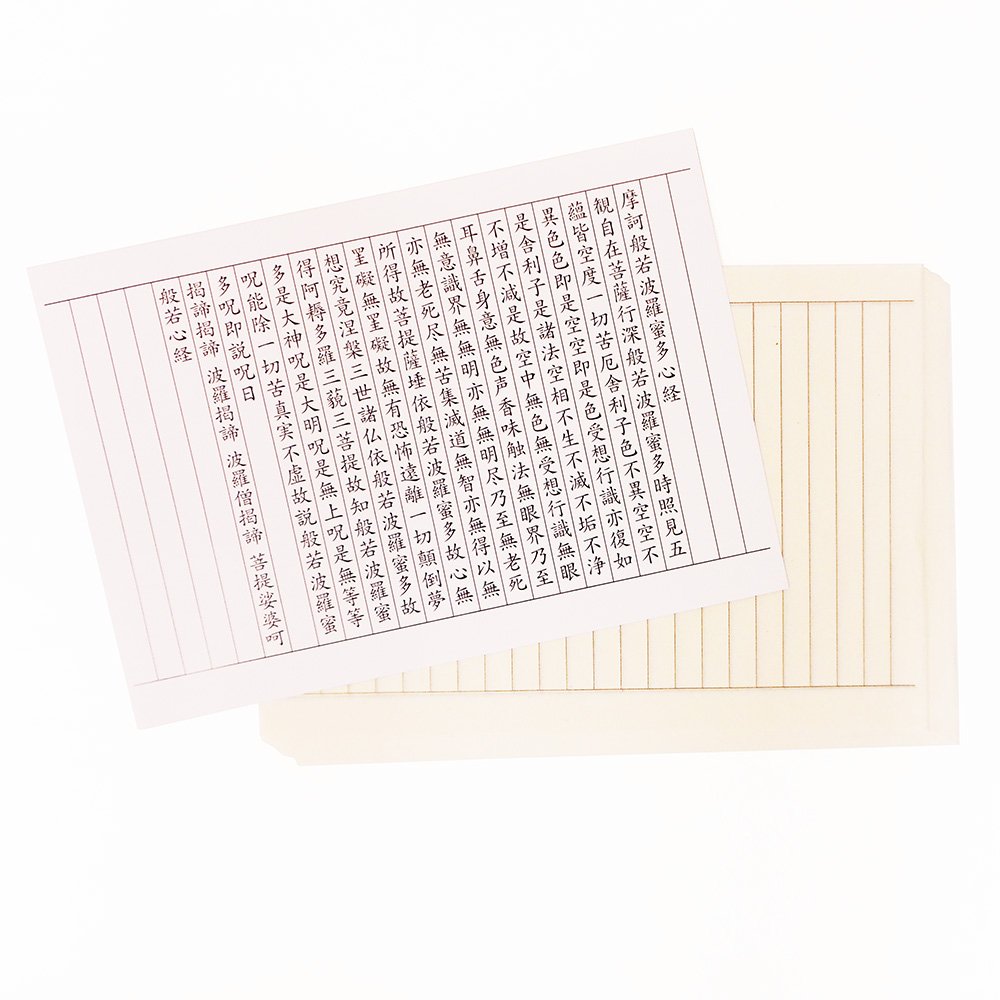 摩訶般若波羅蜜多心経
観自在菩薩行深般若波羅蜜多時照見五
蘊皆空度一切苦厄舎利子色不異空空不
異色色即是空空即是色受想行識亦復如
是舎利子是諸法空相不生不滅不垢不浄
不増不減是故空中無色無受想行識無眼
耳鼻舌身意無色声香味触法無眼界乃至
無意識界無無明亦無無明尽乃至無老死
亦無老死尽無苦集滅道無智亦無得以無
所得故菩提薩埵依般若波羅蜜多故心無
罣礙無罣礙故無有恐怖遠離一切顛倒夢
想究竟涅槃三世諸仏依般若波羅蜜多故
得阿耨多羅三藐三菩提故知般若波羅蜜
多是大神呪是大明呪是無上呪是無等等
呪能除一切苦真実不虚故説般若波羅蜜
多呪即説呪曰
揭諦揭諦 波羅揭諦 波羅僧揭諦 菩提娑婆呵
般若心経